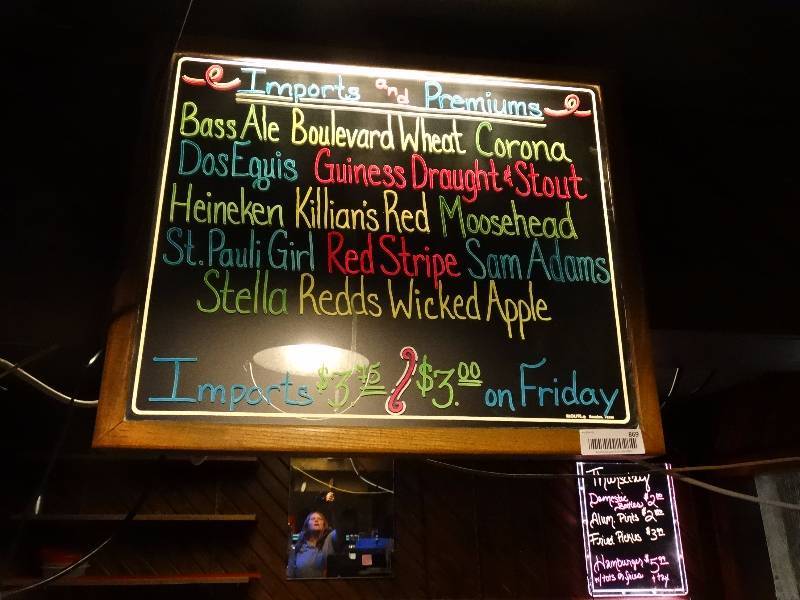 Imports and Premiums
Bass Ale Boulevard Wheat Corona
Dos Equis Guiness Draught & Stout
Heineken Killian's Red Moosehead
St. Pauli Girl Red Stripe Sam Adams
Stella Redds Wicked Apple
Imports $3.45 $3.00 on Friday
869
Thursday
Domestic
Bottles $2.00
Alum. Pints $2.50
Fried Pickles $3.00
Hamburger $5.00
w/ tots or fries + tax